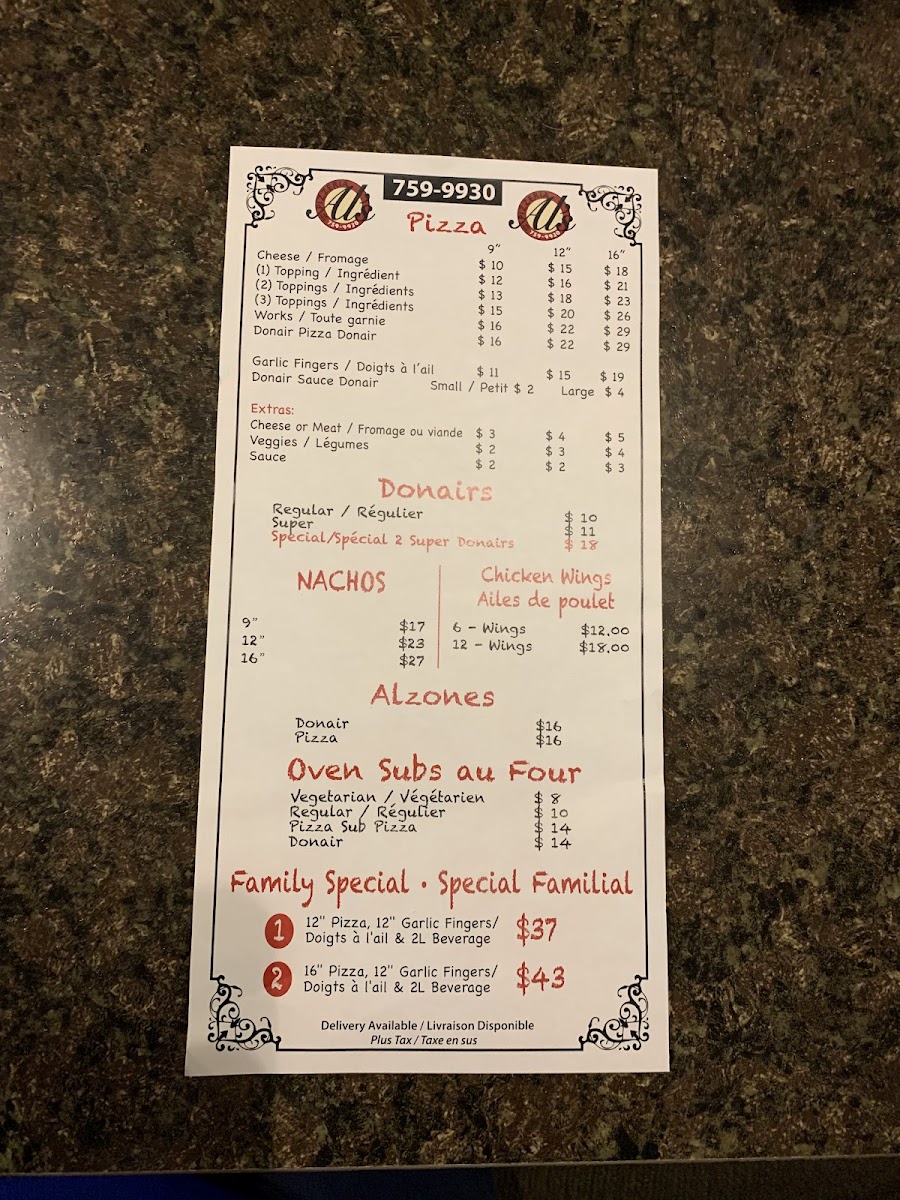 759-9930
Al's Al's
759-9930 759-9930
Pizza
9" 12" 16"
Cheese / Fromage $ 10 $ 15 $ 18
(1) Topping / Ingrédient $ 12 $ 16 $ 21
(2) Toppings / Ingrédients $ 13 $ 18 $ 23
(3) Toppings / Ingrédients $ 15 $ 20 $ 26
Works / Toute garnie $ 16 $ 22 $ 29
Donair Pizza Donair $ 16 $ 22 $ 29
Garlic Fingers / Doigts à l'ail $ 11 $ 15 $ 19
Donair Sauce Donair Small / Petit $ 2 Large $ 4
Extras:
Cheese or Meat / Fromage ou viande $ 3 $ 4 $ 5
Veggies / Légumes $ 2 $ 3 $ 4
Sauce $ 2 $ 2 $ 3
Donairs
Regular / Régulier $ 10
Super $ 11
Special/Spécial 2 Super Donairs $ 18
NACHOS
9" $17
12" $23
16" $27
Chicken Wings
Ailes de poulet
6 - Wings $12.00
12 - Wings $18.00
Alzones
Donair $16
Pizza $16
Oven Subs au Four
Vegetarian / Végétarien $ 8
Regular / Régulier $ 10
Pizza Sub Pizza $ 14
Donair $ 14
Family Special • Special Familial
1 12" Pizza, 12" Garlic Fingers/ $37
Doigts à l'ail & 2L Beverage
2 16" Pizza, 12" Garlic Fingers/ $43
Doigts à l'ail & 2L Beverage
Delivery Available / Livraison Disponible
Plus Tax / Taxe en sus